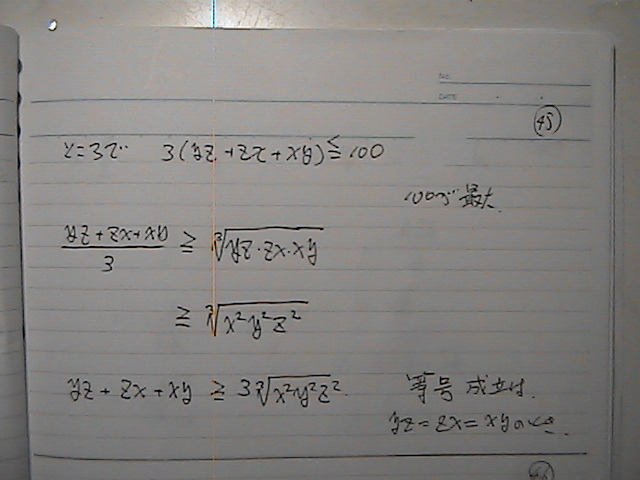 NO.
DATE
45
ここで 3(yz+zx+xy)≦100
100が最大
(yz+zx+xy)/3 ≧ ∛(yz・zx・xy)
≧ ∛(x²y²z²)
yz+zx+xy ≧ 3∛(x²y²z²)
等号成立は、
yz=zx=xyのとき